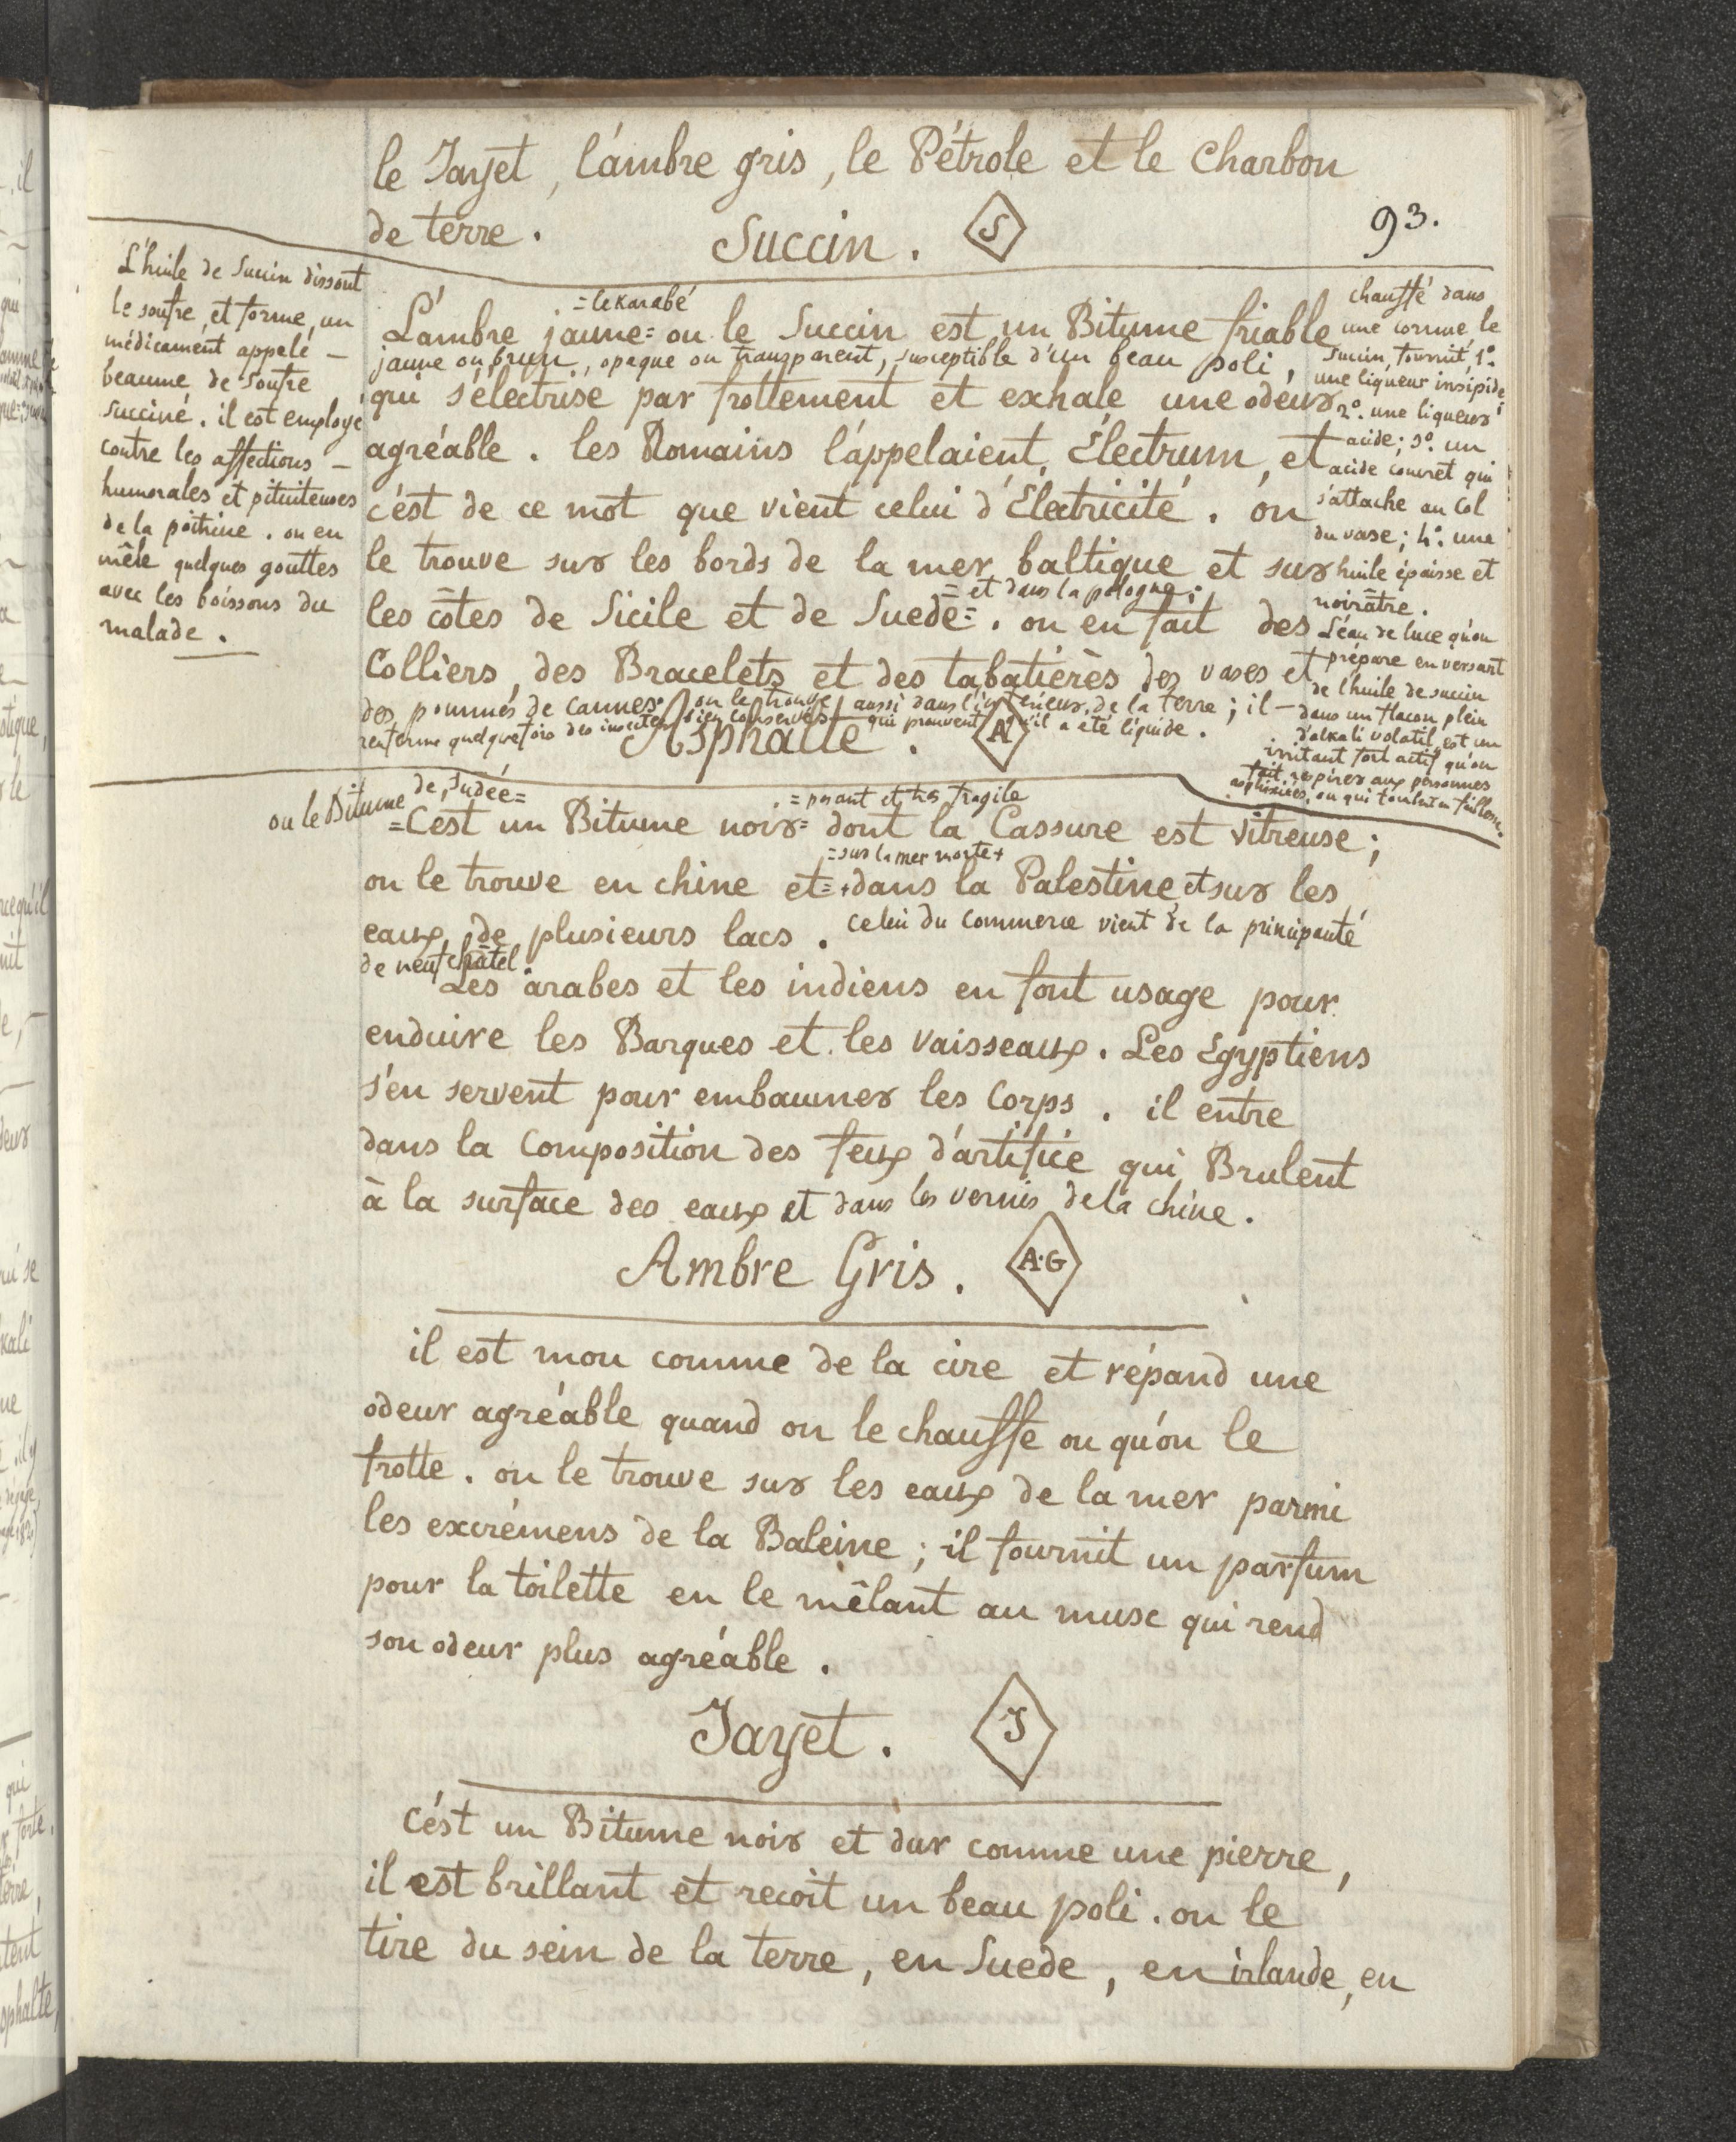 le Jayet, l'ambre gris, le Pétrole et le charbon
de terre.
93.
Succin. S
L'huile de Succin dissout
le soufre, et forme, un
médicament appelé —
beaume de soufre
succiné. il est employé
contre les affections —
humorales et pituiteuses
de la poitrine. on en
mêle quelques gouttes
avec les boissons du
malade.
= le Karabé
L'ambre jaune = ou le Succin est un Bitume friable
jaune ou brun, opaque ou transparent, susceptible d'un beau poli,
qui s'électrise par frottement et exhale une odeur
agréable. les Romains l'appelaient, Électrum, et
c'est de ce mot que vient celui d'Électricité. on
le trouve sur les bords de la mer baltique et sur
= et dans la pologne;
les côtes de Sicile et de Suede =. on en fait des
Colliers, des Bracelets et des tabatières des vases et
des pommes de cannes. on le trouve aussi dans l'intérieur de la terre; il —
renferme quelquefois des insectes bien conservés qui prouvent qu'il a été liquide.
chauffé dans
une cornue, le
succin, fournit, 1º.
une liqueur insipide
2º. une liqueur
acide; 3º. un
acide concret qui
s'attache au Col
du vase; 4º. une
huile épaisse et
noirâtre.
L'eau de luce qu'on
prépare en versant
de l'huile de succin
dans un flacon plein
d'alkali volatil, est un
irritant fort actif qu'on
fait respirer aux personnes
asphixiées, ou qui tombent en faillesse.
Asphalte. A
ou le Bitume de Judée =
= pesant et très fragile
= C'est un Bitume noir = dont la Cassure est vitreuse;
= sur la mer morte +
on le trouve en chine et = + dans la Palestine et sur les
eaux de plusieurs lacs. celui du commerce vient de la principauté
de neufchâtel.
Les arabes et les indiens en font usage pour
enduire les Barques et les vaisseaux. Les Egyptiens
s'en servent pour embaumer les Corps. il entre
dans la Composition des feux d'artifice qui Brulent
à la surface des eaux et dans les vernis de la chine.
Ambre Gris. A.G
il est mou comme de la cire et répand une
odeur agréable quand on le chauffe ou qu'on le
frotte. on le trouve sur les eaux de la mer parmi
les excrémens de la Baleine; il fournit un parfum
pour la toilette en le mêlant au musc qui rend
son odeur plus agréable.
Jayet. J
C'est un Bitume noir et dur comme une pierre,
il est brillant et recoit un beau poli. on le
tire du sein de la terre, en Suede, en irlande, en